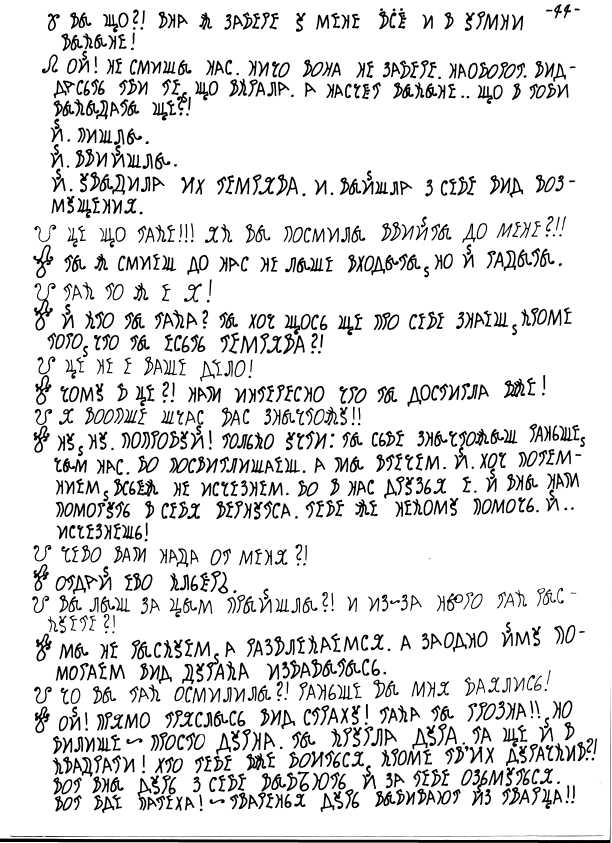 -44-
ВЫ ЩО?! ВНА Ж ЗАБЕРЕ У МЕНЕ ВСЁ И В УРМНИ
ОЙ! НЕ СМИШЫ НАС. НИЧО ВОНА НЕ ЗАБЕРЕ. НАОБОРОТ. ВИД-
ТВИ ТЕ, ЩО ВКРАЛА. А НАСЧЁТ .. ЩО В ТОБИ
ЩЕ?!
Й. ПИШЛЫ.
Й. ВВИЙШЛЫ.
Й. УВАДИЛА ИХ ТЕМРЯВА. И. ВЫЙШЛА З СЕБЕ ВИД ВОЗ-
МУЩЕНИЯ.
ЦЕ ЩО ТАКЕ!!! ЯК ВЫ ПОСМИЛЫ ВВИЙТЫ ДО МЕНЕ?!!
ТЫ Ж СМИЕШ ДО НАС НЕ ЛЫШЕ ВХОДЫТЫ, НО Й ГАДЫТЫ.
ТАК ТО Ж Е Я!
Й КТО ТЫ ТАКА? ТЫ ХОЧ ЩОСЬ ЩЕ ПРО СЕБЕ ЗНАЕШ, КРОМЕ
ТОГО, ЧТО ТЫ ЕСЬТЬ ТЕМРЯВА?!
ЦЕ НЕ Е ВАШЕ ДЕЛО!
ЧОМУ В ЦЕ?! НАМ ИНТЕРЕСНО ЧТО ТЫ ДОСТИГЛА ВЖЕ!
Я ВООПШЕ ШЧАС ВАС ЗНЫЧТОЖУ!!
НУ, НУ. ПОПРОБУЙ! ТОЛЬКО УЧТИ: ТЫ СЬБЕ ЗНЫЧТОЖЫШ РАНЬШЕ,
ЧЫМ НАС. БО ПОСВИТЛИШАЕШ. А МЫ ВТЕЧЕМ. Й. ХОЧ ПОТЕМ-
НИЕМ, ВСЬЕЖ НЕ ИСЧЕЗНЕМ. БО В НАС ДРУЗЬЯ Е. Й ВНЫ НАМ
ПОМОГУТЬ В СЕБЯ ВЕРНУТСА. ТЕБЕ ЖЕ НЕКОМУ ПОМОЧЬ. Й..
ИСЧЕЗНЕШЬ!
ЧЕВО ВАМ НАДА ОТ МЕНЯ?!
ОТДАЙ ЕВО
ВЫ ЛЫШ ЗА ЦЫМ ПРЫЙШЛЫ?! И ИЗ-ЗА НЬОГО ТАК РЫС-
КУЕТЕ?!
МЫ НЕ РЫСКУЕМ, А РАЗВЛЕКАЕМСЯ. А ЗАОДНО ЙМУ ПО-
МОГАЕМ ВИД ДУРАКА ИЗБАВЫТЫСЬ.
ЧО ВЫ ТАК ОСМИЛИЛЫ?! РАНЬШЕ ВЫ МНЯ БАЯЛИСЬ!
ОЙ! ПРЯМО ТРЯСЛЫСЬ ВИД СТРАХУ! ТАКА ТЫ ГРОЗНА!!, НО
ВИЛИШЕ ~ ПРОСТО ДУРНА. ТЫ КРУГЛА ДУРА. ТА ЩЕ Й В
КВАДРАТИ! ХТО ТЕБЕ ВЖЕ БОИТЬСЯ, КРОМЕ ТВ'ИХ ДУРАЧКИВ?!
ВОТ ВНЫ ДУРЬ З СЕБЕ ВЫБЪЮТЬ Й ЗА ТЕБЕ ОЗЬМУТЬСЯ.
ВОТ БДЕ ПАТЕХА! ~ ТВАРЕНЬЯ ДУРЬ ВЫБИВАЮТ ИЗ ТВАРЦА!!